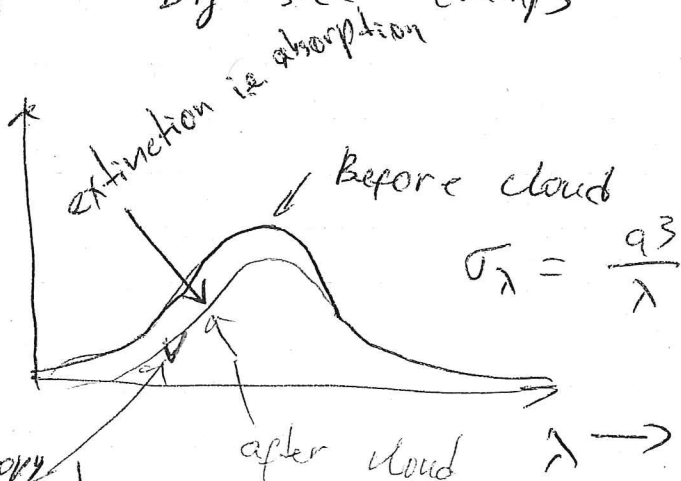 extinction ie absorption
Before cloud
σ_λ = a3/λ
after cloud
λ →